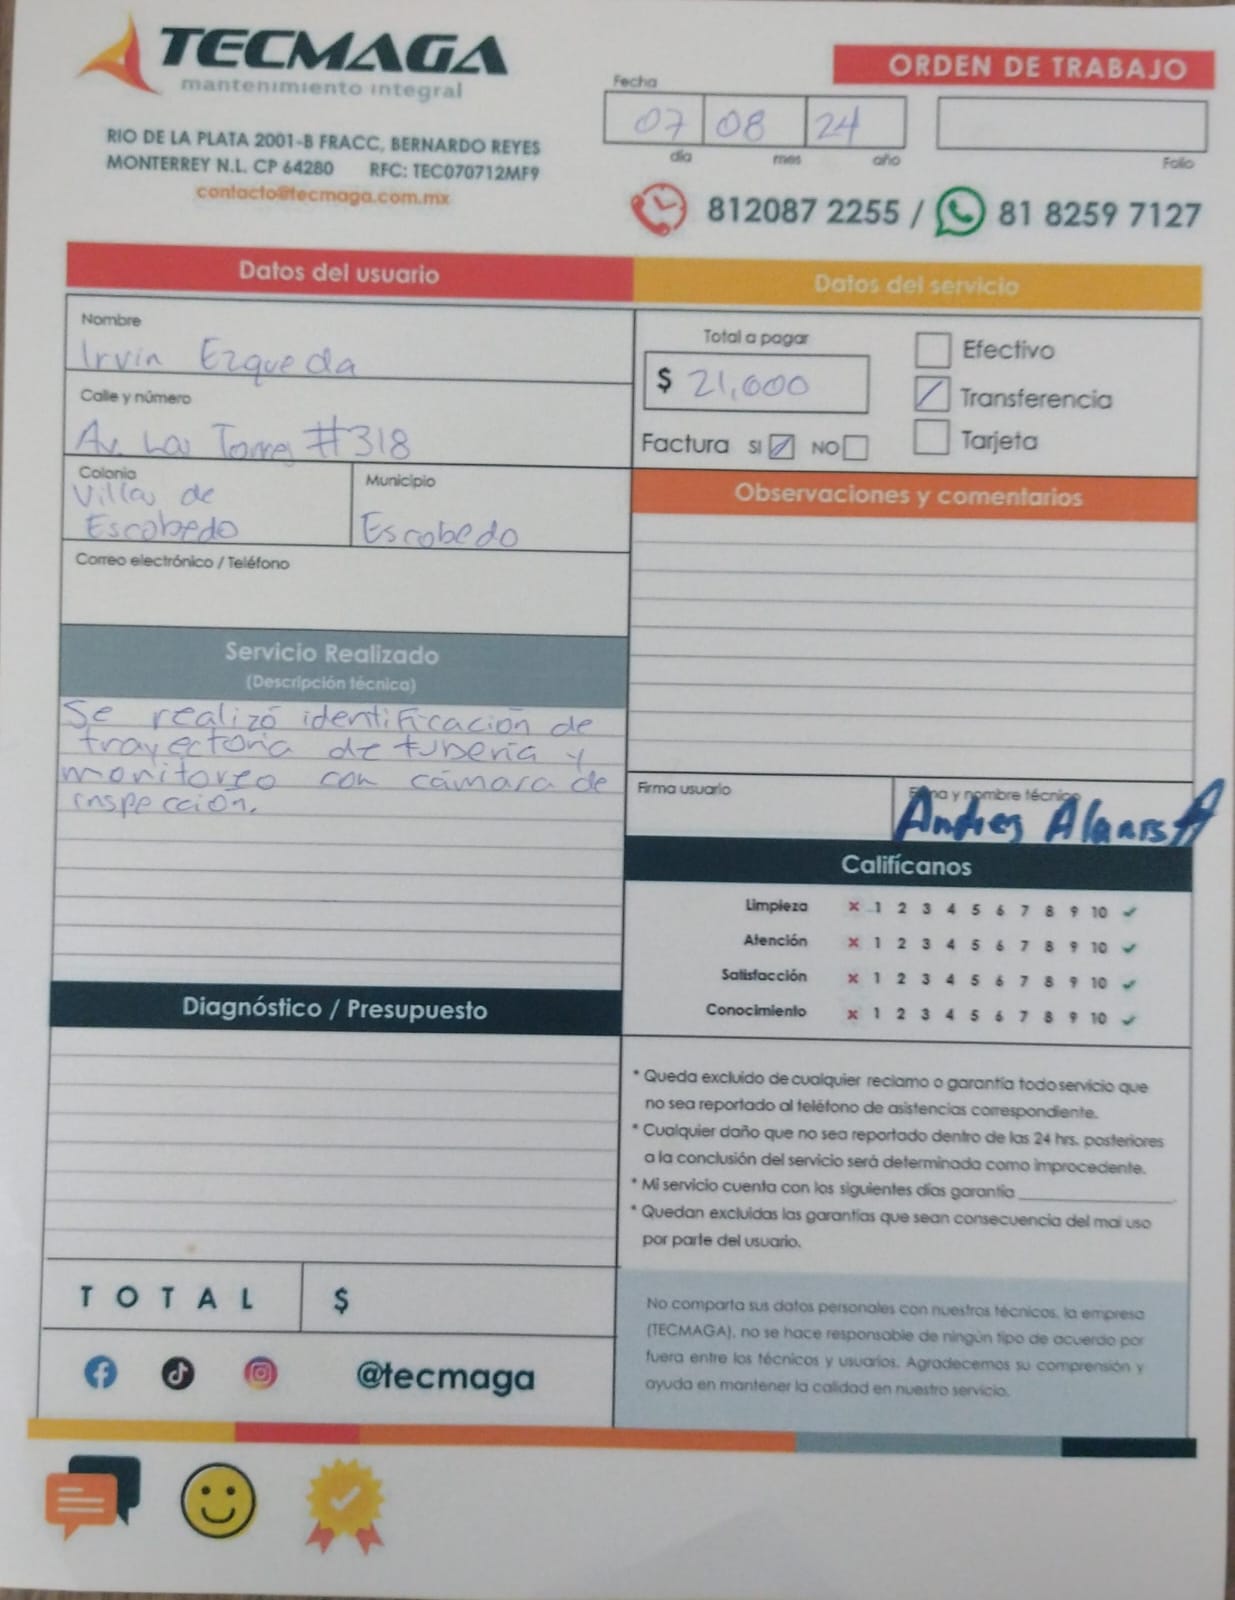 TECMAGA
mantenimiento integral
RIO DE LA PLATA 2001-B FRACC, BERNARDO REYES
MONTERREY N.L. CP 64280 RFC: TEC070712MF9
contacto@tecmaga.com.mx
ORDEN DE TRABAJO
Fecha
07 08 24
día mes año
Folio
812087 2255 / 81 8259 7127
Datos del usuario
Nombre
Irvin Ezqueda
Calle y número
Av. Las Torres #318
Colonia
Villas de
Escobedo
Municipio
Escobedo
Correo electrónico / Teléfono
Servicio Realizado
(Descripción técnica)
Se realizó identificación de
trayectoria de tubería y
monitoreo con cámara de
inspección.
Diagnóstico / Presupuesto
TOTAL $
@tecmaga
Datos del servicio
Total a pagar
$ 21,000
Efectivo
Transferencia
Tarjeta
Factura SI NO
Observaciones y comentarios
Firma usuario
Firma y nombre técnico
Andres
Califícanos
Limpieza x 1 2 3 4 5 6 7 8 9 10 ✓
Atención x 1 2 3 4 5 6 7 8 9 10 ✓
Satisfacción x 1 2 3 4 5 6 7 8 9 10 ✓
Conocimiento x 1 2 3 4 5 6 7 8 9 10 ✓
* Queda excluido de cualquier reclamo o garantía todo servicio que
no sea reportado al teléfono de asistencias correspondiente.
* Cualquier daño que no sea reportado dentro de las 24 hrs. posteriores
a la conclusión del servicio será determinada como improcedente.
* Mi servicio cuenta con los siguientes días garantía
* Quedan excluidas las garantías que sean consecuencia del mal uso
por parte del usuario.
No comparta sus datos personales con nuestros técnicos, la empresa
(TECMAGA), no se hace responsable de ningún tipo de acuerdo por
fuera entre los técnicos y usuarios. Agradecemos su comprensión y
ayuda en mantener la calidad en nuestro servicio.